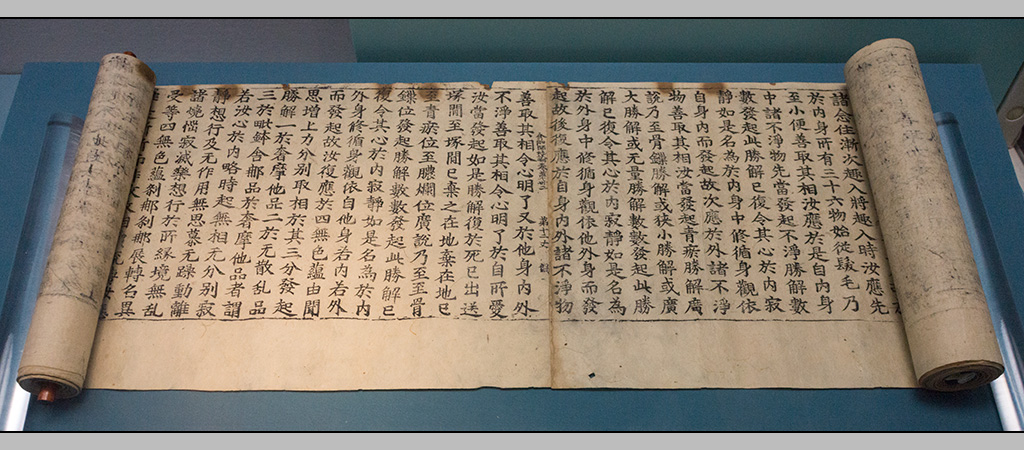 諸念住漸次趣入將趣入時汝應先
於內身所有三十六物始從髮毛乃
至小便善取其相汝應於是自內身
中諸不淨物先當發起不淨勝解數
數發起此勝解已復令其心於內寂
靜如是名為於內身中修循身觀依
自身內而發起故次應於外諸不淨
物善取其相汝當發起青瘀勝解廣
說乃至骨鏁勝解或狹小勝解或廣
大勝解或无量勝解數數發起此勝
解已復令其心於內寂靜如是名為
於外身中修循身觀依他外身而發
起故後復應於自身內外諸不淨物
善取其相令心明了又於他身內外
不淨善取其相令心明了於自所愛
汝當發起如是勝解復於死已出送
塚間至塚間已棄之在地棄在地已
至青瘀位至膿爛位廣說乃至至骨
鏁位發起勝解數數發起此勝解已
復令其心於內寂靜如是名為於內
外身修循身觀依自他身若內若外
而發起故汝復應於四無色蘊由聞
思增上力分別取相於其三分發起
勝解一於奢摩他品二於无散亂品
三於毗鉢舍那品於奢摩他品者謂
若汝心於內略時起無相无分別寂
靜想行及无作用無思慕无躁動離
諸燒惱寂滅樂想行於所緣境無亂
受等四無色蘊剎那剎那展轉名異